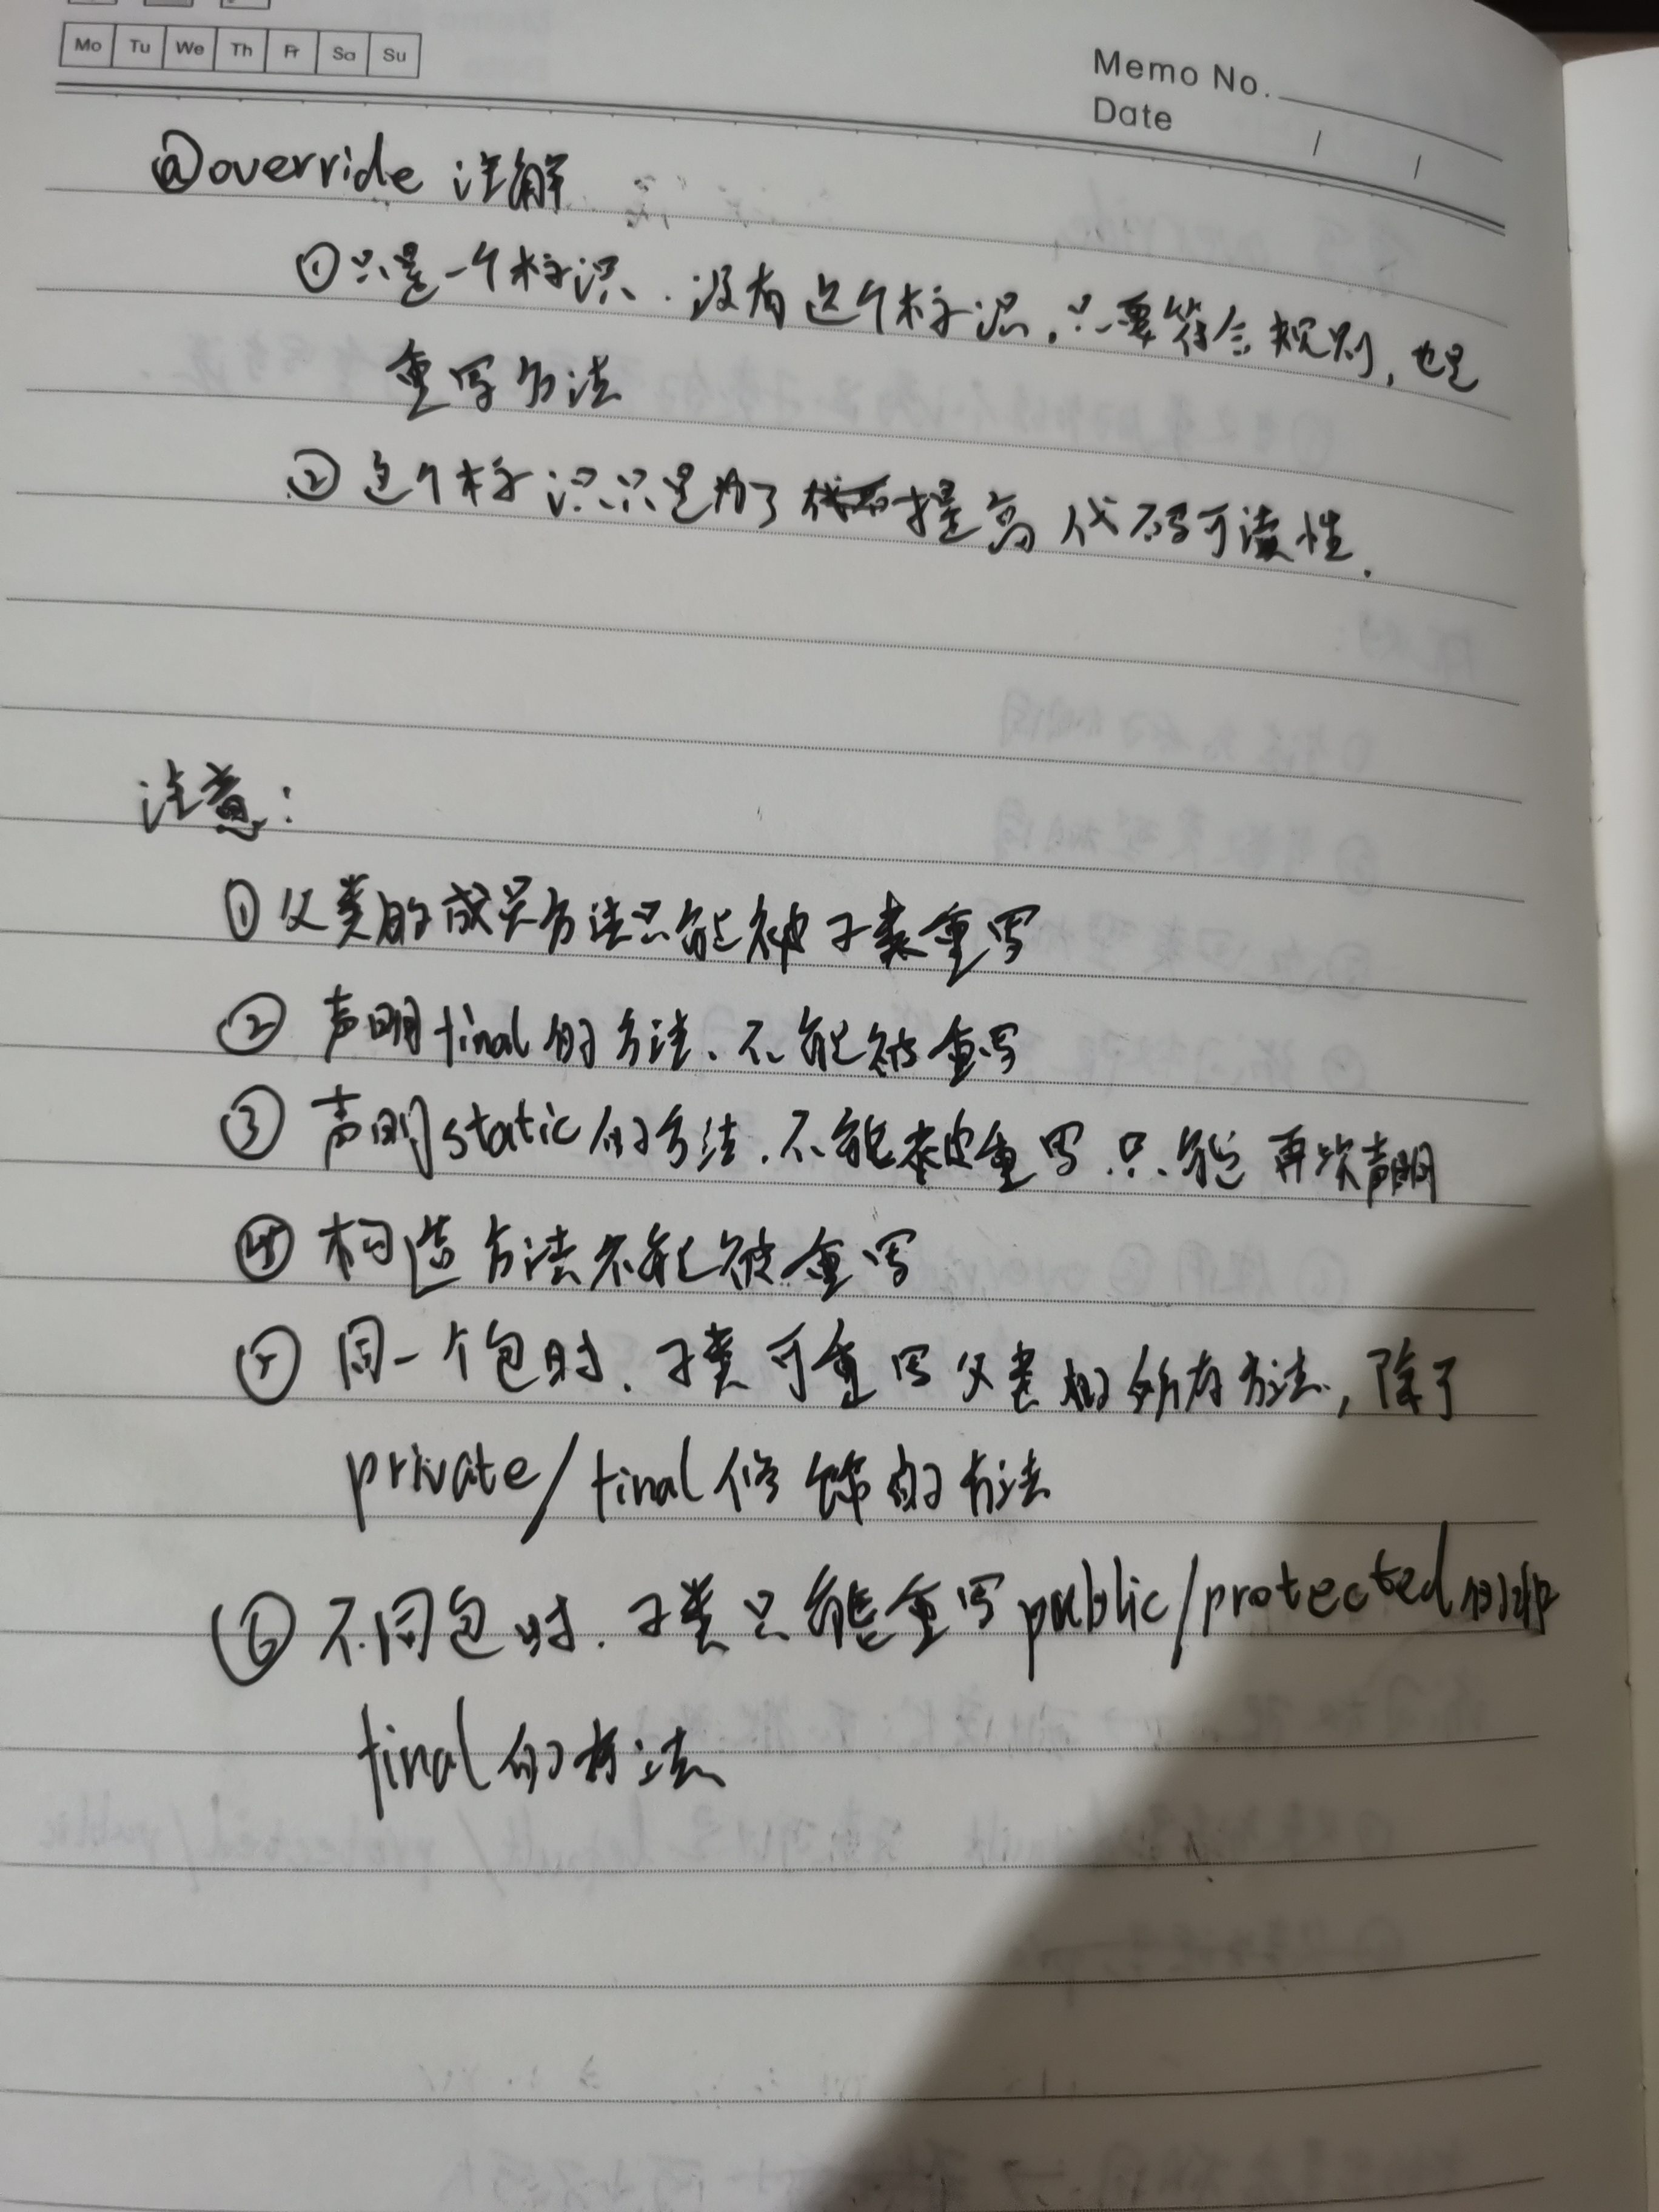 Mo Tu We Th Fr Sa Su
Memo No.
Date / /
@override 注解
①只是一个标识.没有这个标识,只要符合规则,也是
重写方法
②这个标识只是为了提高代码可读性.
注意:
①父类的成员方法只能被子类重写
②声明final的方法、不能被重写
③声明static的方法.不能被重写.只能再次声明
④构造方法不能被重写
⑤同一个包时.子类可重写父类的所有方法,除了
private/final修饰的方法
⑥不同包时.子类只能重写public/protected的非
final的方法